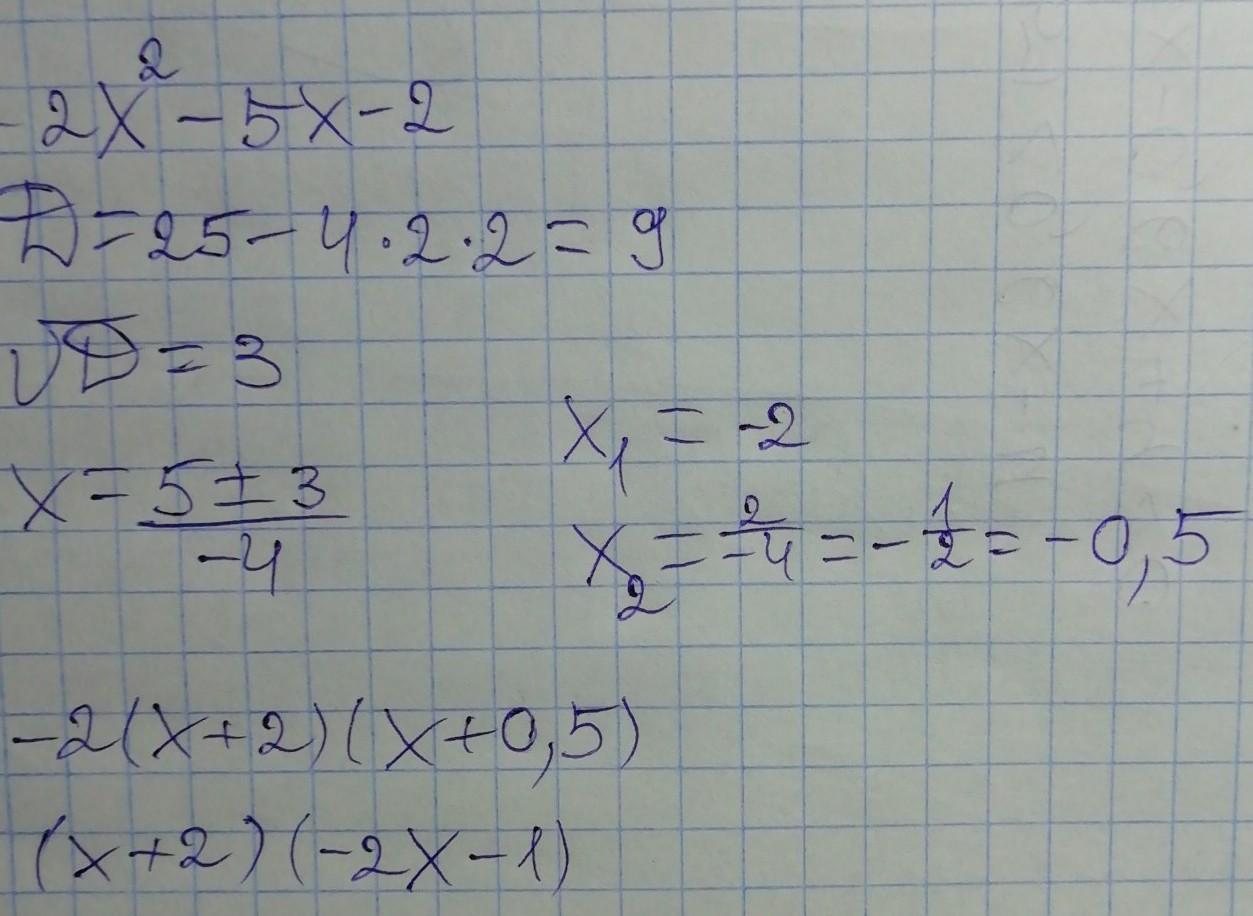 -2x² - 5x - 2
D = 25 - 4 · 2 · 2 = 9
√D = 3
x = (5 ± 3)/-4
x₁ = -2
x₂ = 2/-4 = -1/2 = -0,5
-2(x+2)(x+0,5)
(x+2)(-2x-1)